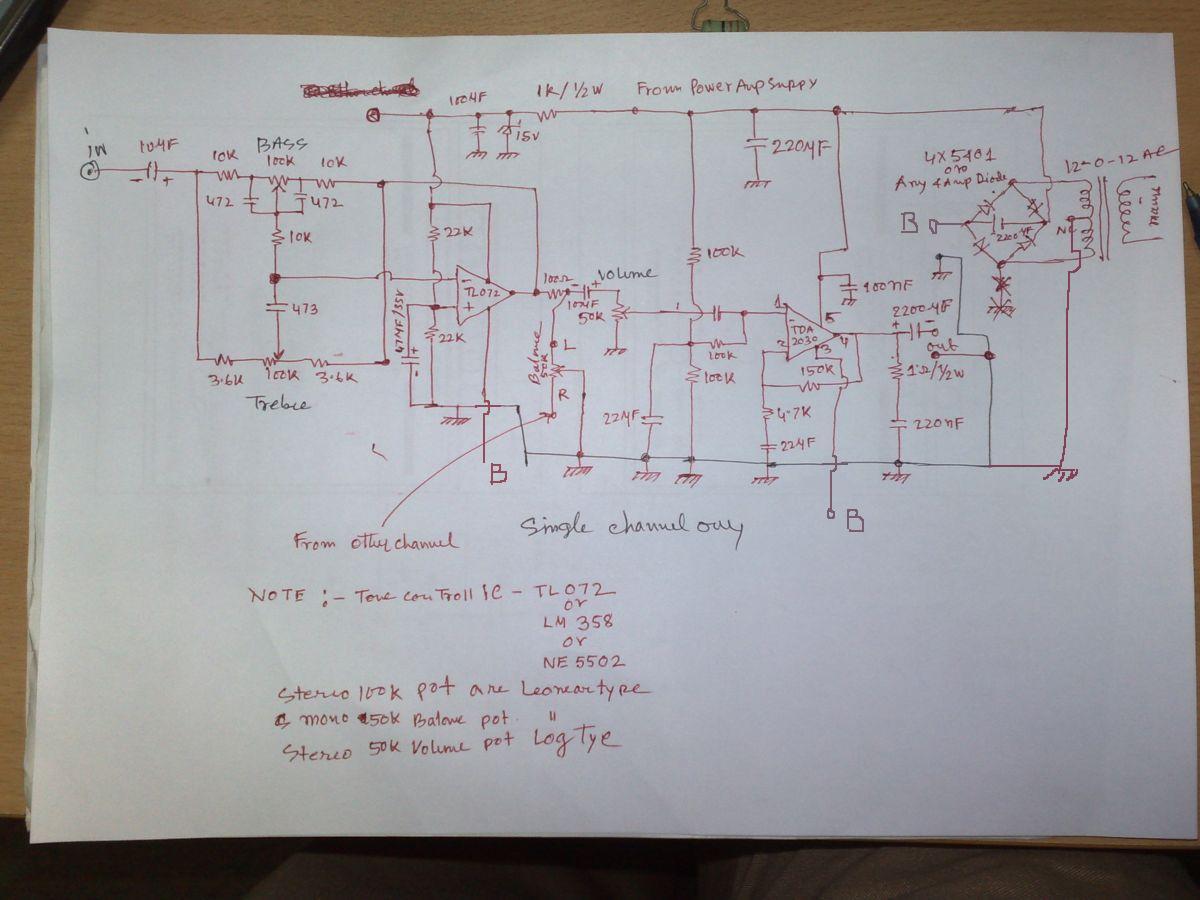 100MF
1K/½W
From Power Amp Supply
15V
iN
10MF
BASS
10K
100K
10K
220MF
4X5401
or
Any 4 Amp Diode
12-0-12 AC
472
472
B
2200MF
NC
10K
22K
100K
100nF
473
TL072
47MF/35V
22K
100Ω
10MF
Volume
50K
1
5
TDA
2030
4
2
3
2200MF
out
3.6K
100K
3.6K
Treble
Balance
50K
L
R
100K
100K
150K
1Ω/½W
4.7K
22MF
22MF
220nF
B
B
From other channel
Single channel only
NOTE :- Tone controll iC - TL072
or
LM 358
or
NE 5502
Stereo 100K pot are Leoneartype
mono 50K Balone pot. "
Stereo 50K Volume pot Log Tye